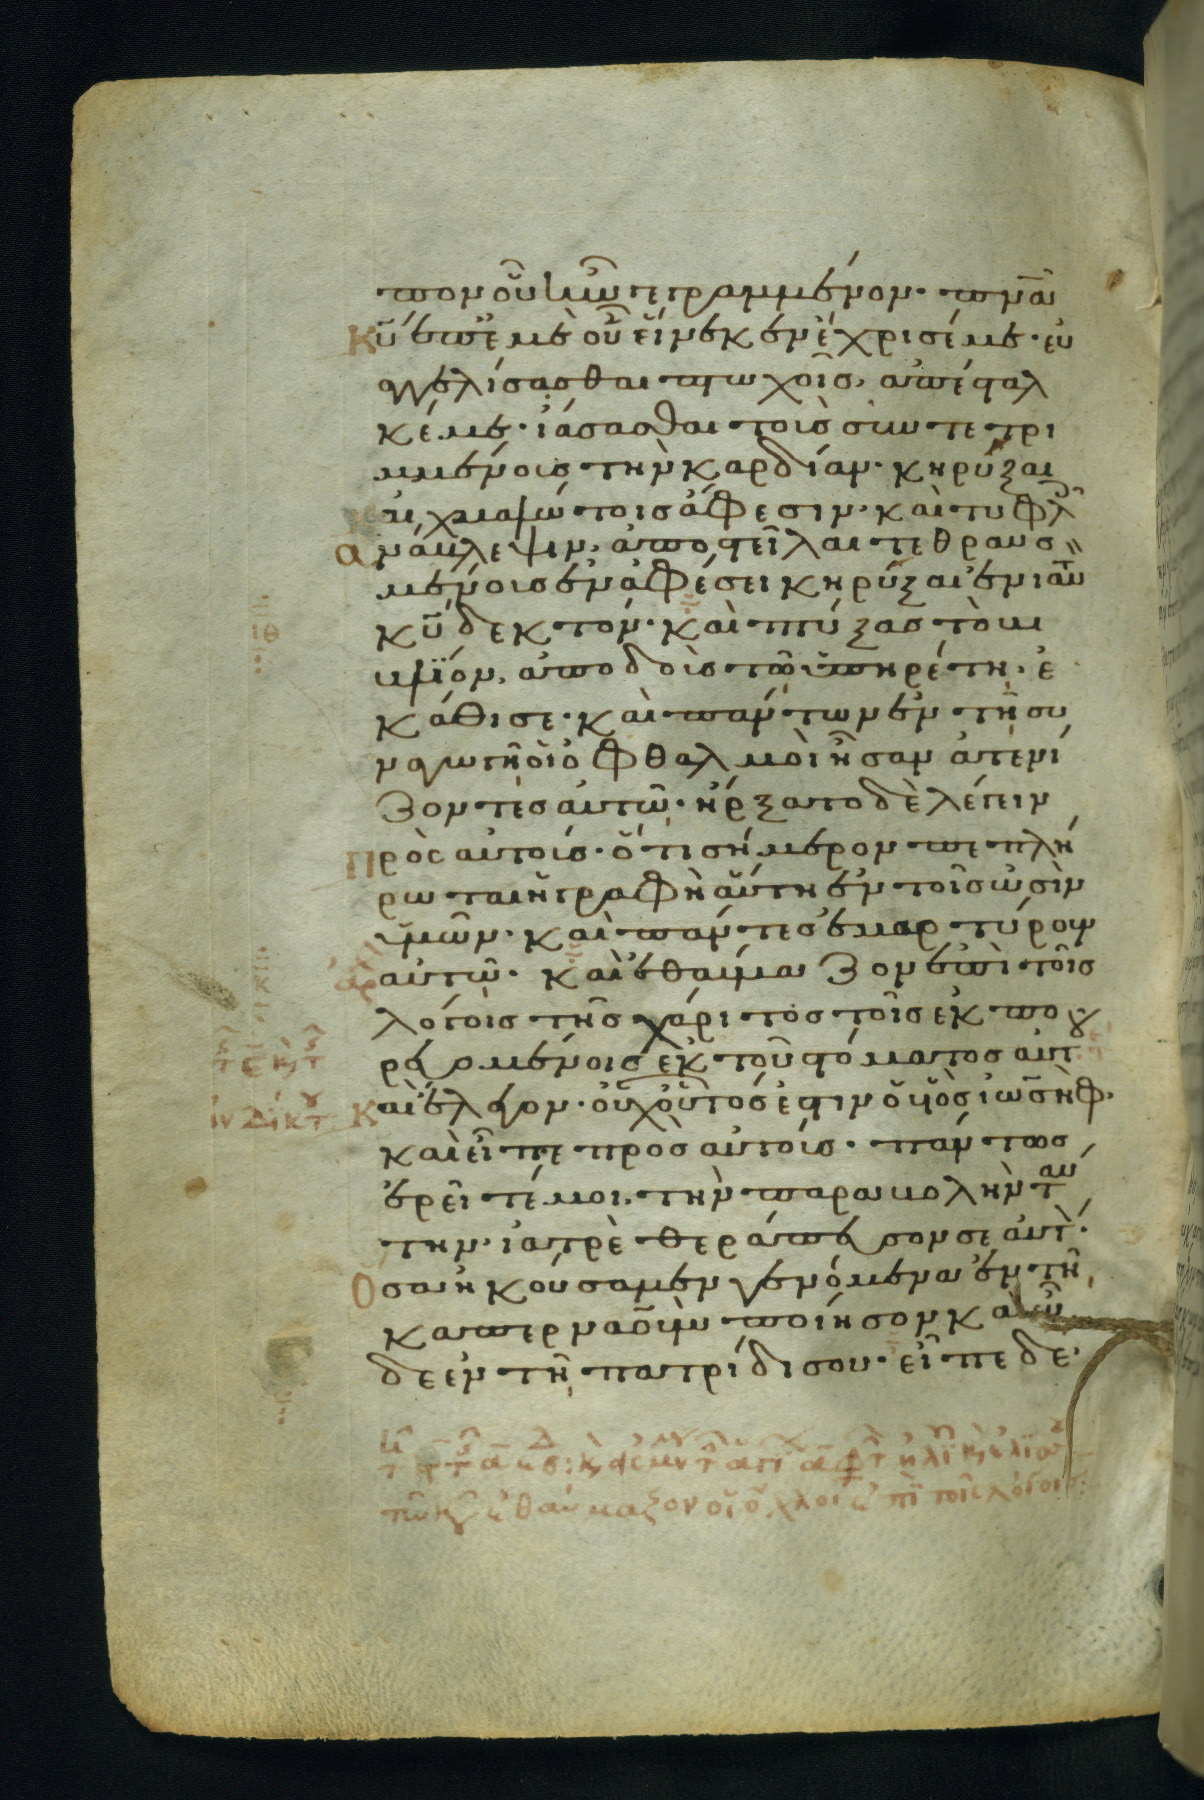 πον οὗ ἦν γεγραμμένον· πνᾶ
κῡ ἐπ' ἐμὲ οὗ εἵνεκεν ἔχρισέ με· εὐ
αγγελίσασθαι πτωχοῖς, ἀπέσταλ
κέ με· ἰάσασθαι τοὺς συντετρι
μμένους τὴν καρδίαν· κηρύξαι
αἰχμαλώτοις ἄφεσιν· καὶ τυφλοῖς
ἀνάβλεψιν, ἀποστεῖλαι τεθραυσ
μένους ἐν ἀφέσει κηρύξαι ἐνιαυτὸν
κῡ δεκτόν· καὶ πτύξας τὸ βι
βλίον, ἀποδοὺς τῶ ὑπηρέτη, ἐ
κάθισε· καὶ πάντων ἐν τῆ συ
ναγωγῆ οἱ ὀφθαλμοὶ ἦσαν ἀτενί
ζοντες αὐτῶ· ἤρξατο δὲ λέγειν
πρὸς αὐτούς· ὅτι σήμερον πεπλή
ρωται ἡ γραφὴ αὕτη ἐν τοῖς ὠσὶν
ὑμῶν· καὶ πάντες ἐμαρτύρουν
αὐτῶ· καὶ ἐθαύμαζον ἐπὶ τοῖς
λόγοις τῆς χάριτος τοῖς ἐκπο
ρευομένοις ἐκ τοῦ στόματος αὐτοῦ
καὶ ἔλεγον· οὐχ οὗτός ἐστιν ὁ υἱὸς ἰωσήφ·
καὶ εἶπε πρὸς αὐτούς· πάντως
ἐρεῖτέ μοι, τὴν παραβολὴν ταύ
την· ἰατρὲ θεράπευσον σεαυτόν·
ὅσα ἠκούσαμεν γενόμενα ἐν τῆ
καπερναοὺμ ποίησον καὶ ὧ
δε ἐν τῆ πατρίδι σου· εἶπε δέ·
ἐθαύμαζον οἱ ὄχλοι ἐπὶ τοῖς λόγοις